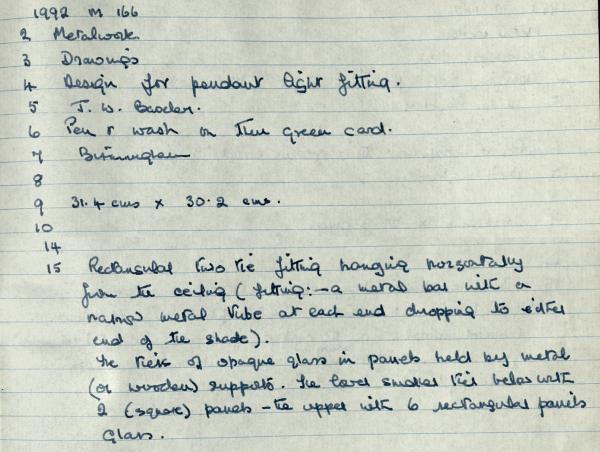 1992 M 166
2 Metalwork
3 Drawings
4 Design for pendant light fitting.
5 J. W.
6 Pen & wash on thin green card.
7 Birmingham
8
9 31.4 cms x 30.2 cms.
10
14
15 Rectangular two tie fitting hanging horizontally
from the ceiling (fitting:- a metal bar with a
narrow metal tube at each end dropping to either
end of the shade).
The tiers of opaque glass in panels held by metal
(or wooden) supports. The lower smaller tier below with
2 (square) panels - the upper with 6 rectangular panels
glass.